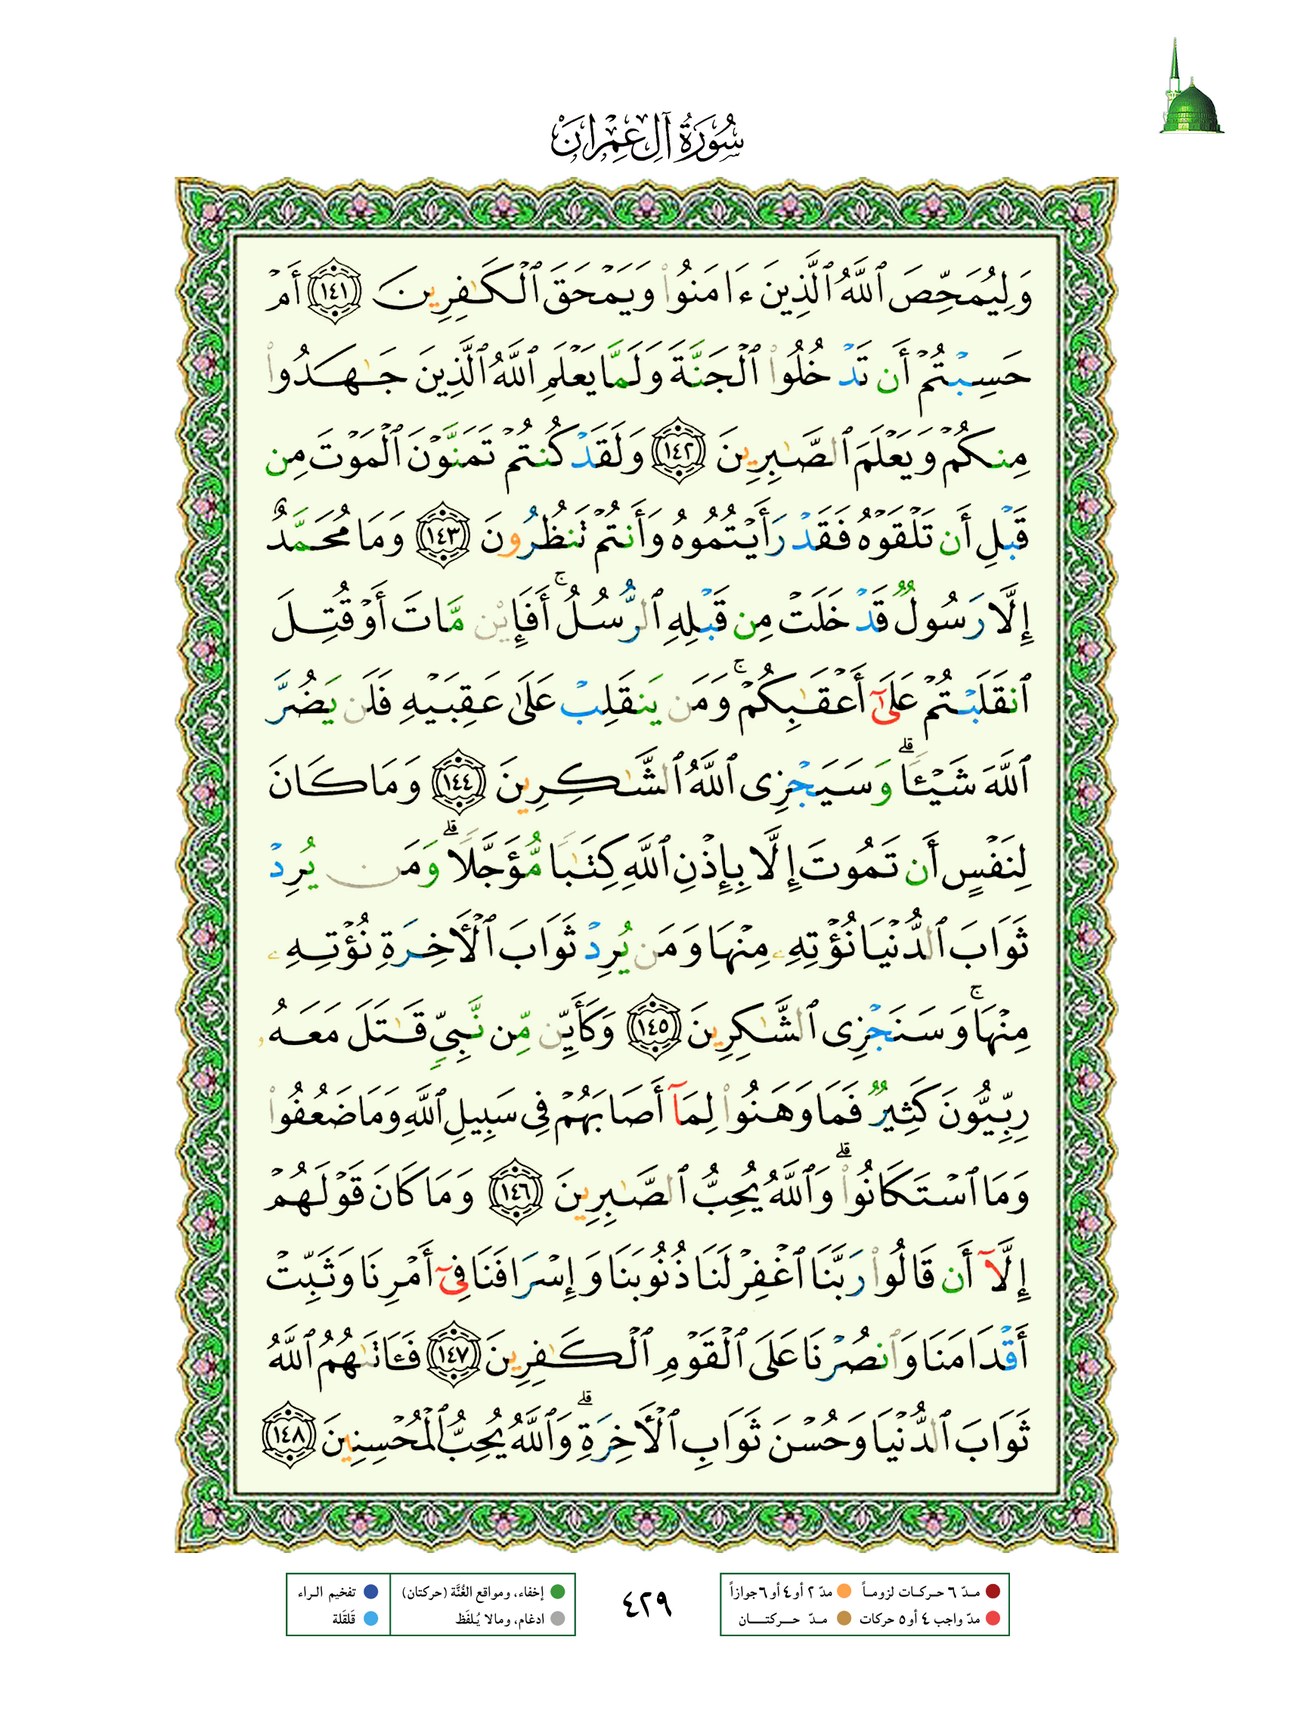 سُورَةُ آلِ عِمْرَان
وَلِيُمَحِّصَ ٱللَّهُ ٱلَّذِينَ ءَامَنُوا۟ وَيَمْحَقَ ٱلْكَـٰفِرِينَ ١٤١ أَمْ
حَسِبْتُمْ أَن تَدْخُلُوا۟ ٱلْجَنَّةَ وَلَمَّا يَعْلَمِ ٱللَّهُ ٱلَّذِينَ جَـٰهَدُوا۟
مِنكُمْ وَيَعْلَمَ ٱلصَّـٰبِرِينَ ١٤٢ وَلَقَدْ كُنتُمْ تَمَنَّوْنَ ٱلْمَوْتَ مِن
قَبْلِ أَن تَلْقَوْهُ فَقَدْ رَأَيْتُمُوهُ وَأَنتُمْ تَنظُرُونَ ١٤٣ وَمَا مُحَمَّدٌ
إِلَّا رَسُولٌ قَدْ خَلَتْ مِن قَبْلِهِ ٱلرُّسُلُ ۚ أَفَإِي۟ن مَّاتَ أَوْ قُتِلَ
ٱنقَلَبْتُمْ عَلَىٰٓ أَعْقَـٰبِكُمْ ۚ وَمَن يَنقَلِبْ عَلَىٰ عَقِبَيْهِ فَلَن يَضُرَّ
ٱللَّهَ شَيْـًٔا ۗ وَسَيَجْزِى ٱللَّهُ ٱلشَّـٰكِرِينَ ١٤٤ وَمَا كَانَ
لِنَفْسٍ أَن تَمُوتَ إِلَّا بِإِذْنِ ٱللَّهِ كِتَـٰبًا مُّؤَجَّلًا ۗ وَمَن يُرِدْ
ثَوَابَ ٱلدُّنْيَا نُؤْتِهِۦ مِنْهَا وَمَن يُرِدْ ثَوَابَ ٱلْـَٔاخِرَةِ نُؤْتِهِۦ
مِنْهَا ۚ وَسَنَجْزِى ٱلشَّـٰكِرِينَ ١٤٥ وَكَأَيِّن مِّن نَّبِىٍّ قَـٰتَلَ مَعَهُۥ
رِبِّيُّونَ كَثِيرٌ فَمَا وَهَنُوا۟ لِمَآ أَصَابَهُمْ فِى سَبِيلِ ٱللَّهِ وَمَا ضَعُفُوا۟
وَمَا ٱسْتَكَانُوا۟ ۗ وَٱللَّهُ يُحِبُّ ٱلصَّـٰبِرِينَ ١٤٦ وَمَا كَانَ قَوْلَهُمْ
إِلَّآ أَن قَالُوا۟ رَبَّنَا ٱغْفِرْ لَنَا ذُنُوبَنَا وَإِسْرَافَنَا فِىٓ أَمْرِنَا وَثَبِّتْ
أَقْدَامَنَا وَٱنصُرْنَا عَلَى ٱلْقَوْمِ ٱلْكَـٰفِرِينَ ١٤٧ فَـَٔاتَىٰهُمُ ٱللَّهُ
ثَوَابَ ٱلدُّنْيَا وَحُسْنَ ثَوَابِ ٱلْـَٔاخِرَةِ ۗ وَٱللَّهُ يُحِبُّ ٱلْمُحْسِنِينَ ١٤٨
مـدّ ٦ حـركـات لزومـاً مدّ ٢ أو ٤ أو ٦ جوازاً
مدّ واجب ٤ أو ٥ حركات مـدّ حـــركتـــــان
٤٢٩
إخفاء، ومواقع الغُنَّة (حركتان) تفخيم الـراء
ادغام، ومالا يُـلفَظ قلقلة